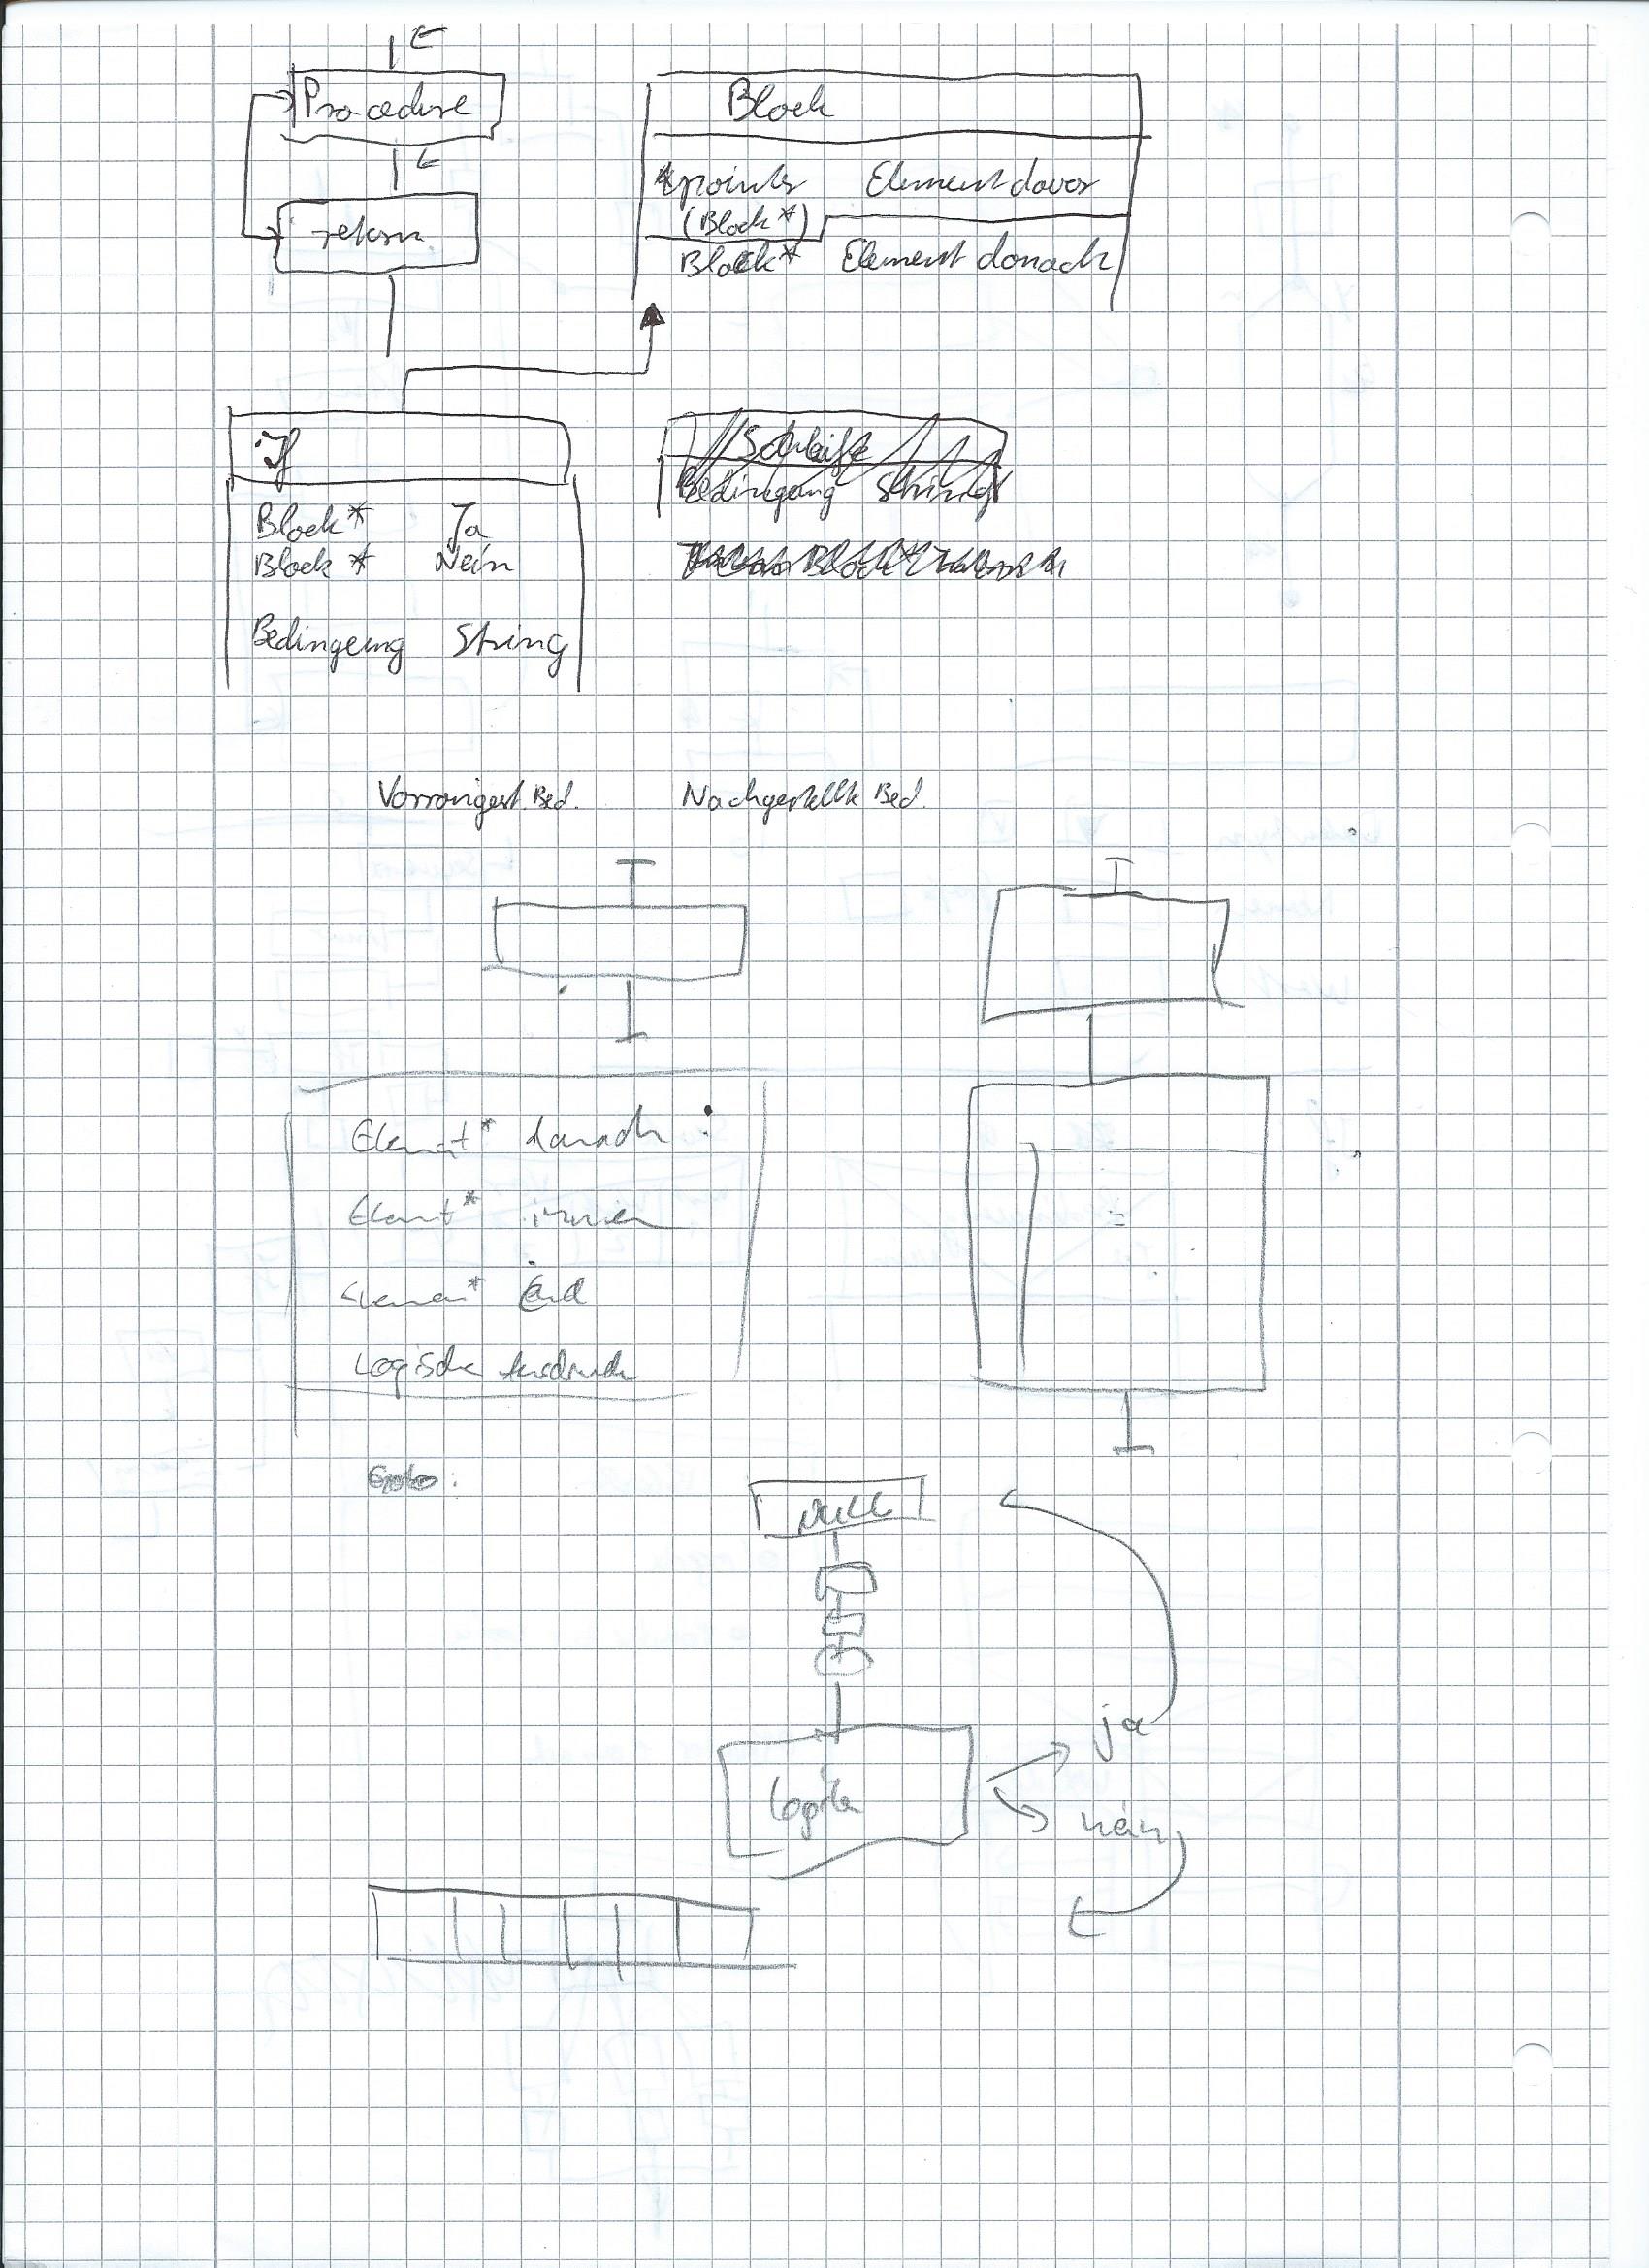 Procedure
return
Block
*pointer Element davor
(Block*)
Block* Element danach
If
Block* Ja
Block* Nein
Bedingung String
Schleife
Bedingung String
Block*
Bed. Nachgestellte Bed.
Element* danach :
Element* innen
Element* End
Logische Ausdruck
Goto:
NULL
Logik
ja
nein